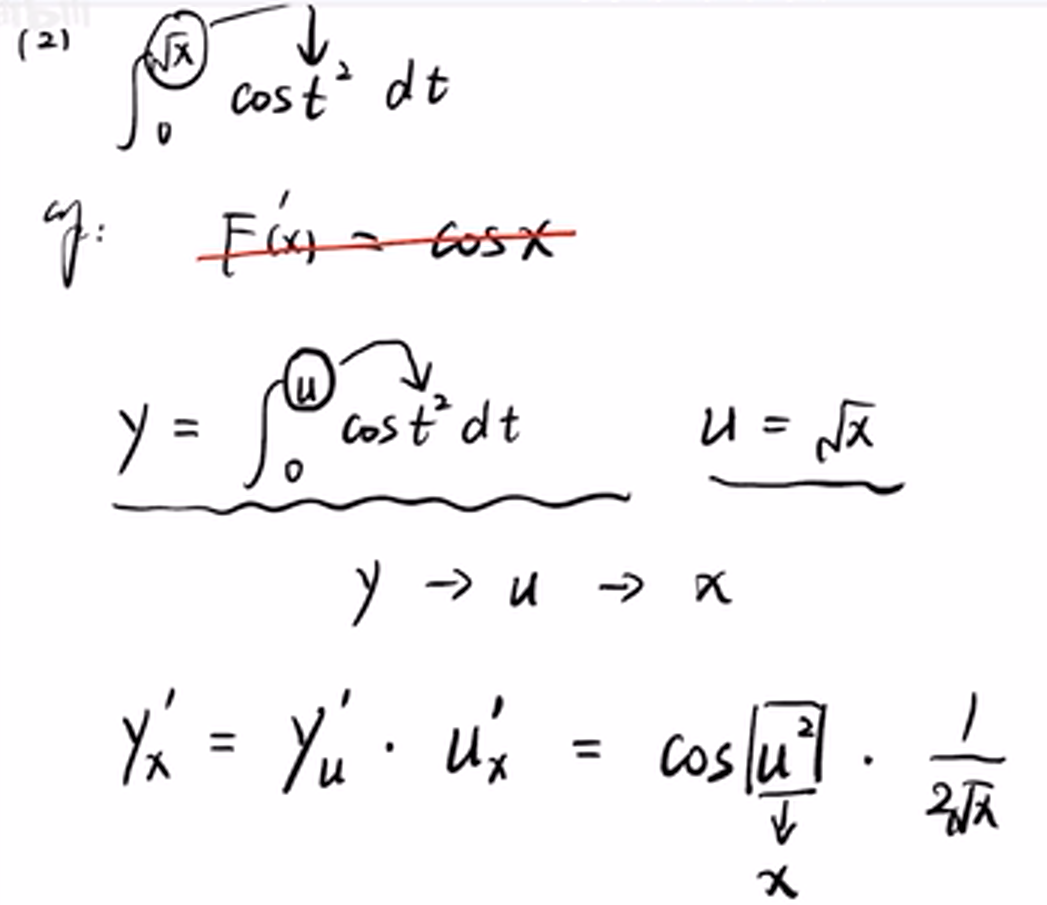 (2) ∫₀^√x cos t² dt
F'(x) = cos x
y = ∫₀^u cos t² dt  u = √x
y → u → x
y'ₓ = y'ᵤ · u'ₓ = cos u² · 1/(2√x)
x